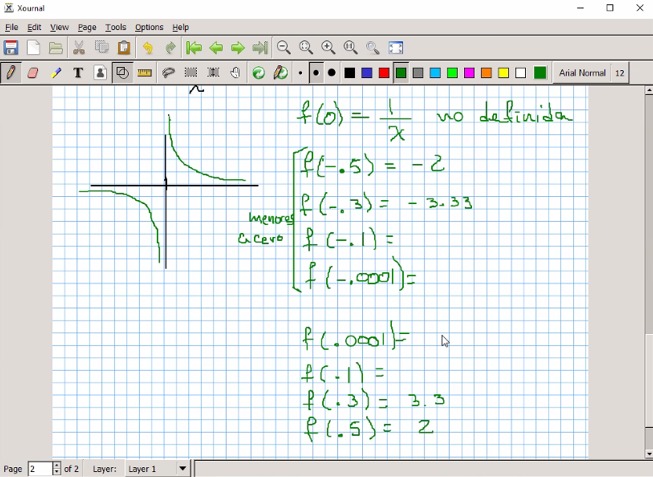 Xournal
File Edit View Page Tools Options Help
T Arial Normal 12
x
f(0) = 1/x no definida
f(-.5) = -2
f(-.3) = -3.33
menores a cero
f(-.1) =
f(-.0001) =
f(.0001) =
f(.1) =
f(.3) = 3.3
f(.5) = 2
Page 2 of 2 Layer: Layer 1